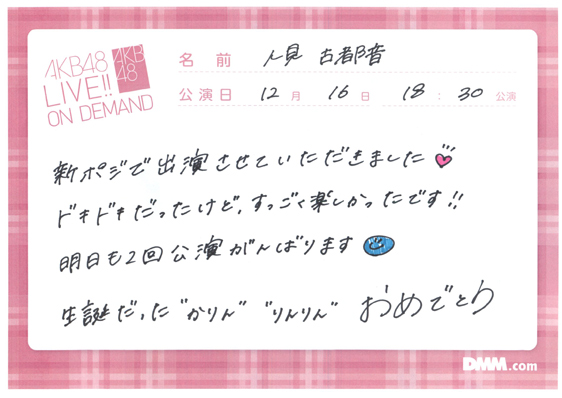 AKB48
LIVE!!
ON DEMAND
AKB
48
名前 人見 古都音
公演日 12月 16日 18:30 公演
新ポジで出演させていただきました
ドキドキだったけど、すっごく楽しかったです!!
明日も2回公演がんばります
生誕だった"かりん" "りんりん" おめでとう
DMM.com